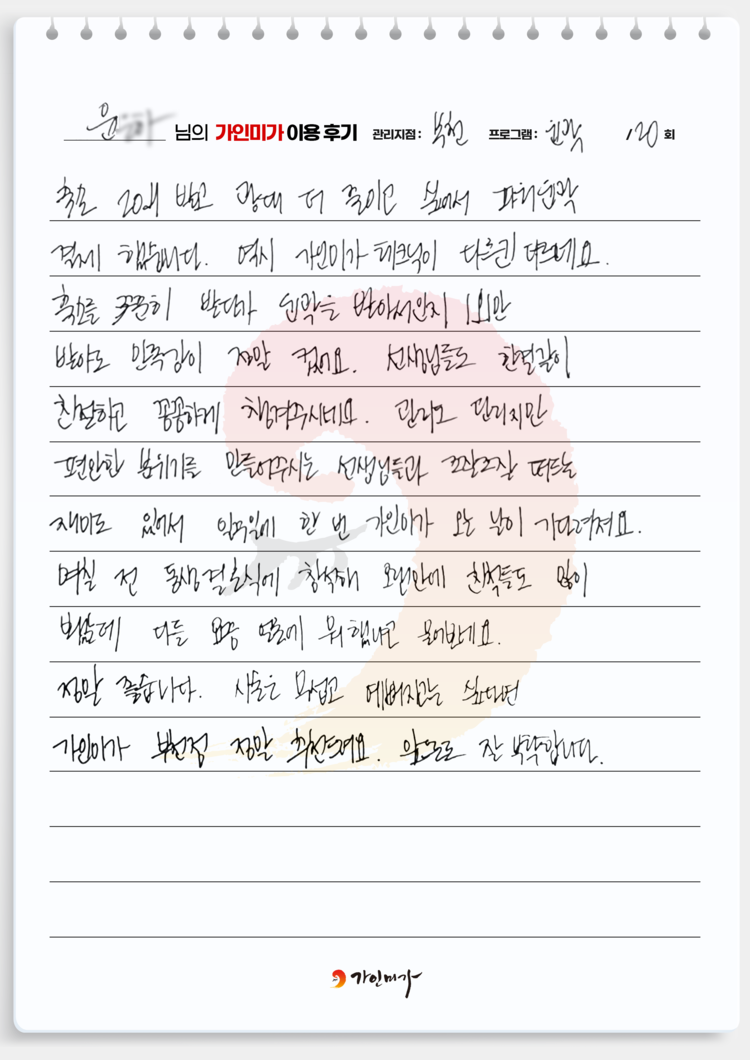 윤 님의 가인미가 이용 후기 관리지점: 부천 프로그램: 윤곽 / 20 회
축소 20회 받고 광대 더 줄이고 싶어서 파워윤곽
결제 했답니다. 역시 가인미가 테크닉이 다르긴 다르네요.
축소를 꾸준히 받다가 윤곽을 받아서인지 1회만
받아도 만족감이 정말 컸어요. 선생님들도 한결같이
친절하고 꼼꼼하게 챙겨주시네요. 관리도 관리지만
편안한 분위기를 만들어주시는 선생님들과 조잘조잘 떠드는
재미도 있어서 일주일에 한 번 가인미가 오는 날이 기다려져요.
며칠 전 동생결혼식에 참석해 오랜만에 친척들도 많이
뵈었는데 다들 요즘 얼굴에 뭐 했냐고 물어보네요.
정말 좋습니다. 시술은 무섭고 예뻐지고는 싶다면
가인미가 부천점 정말 추천드려요. 앞으로도 잘 부탁합니다.
가인미가